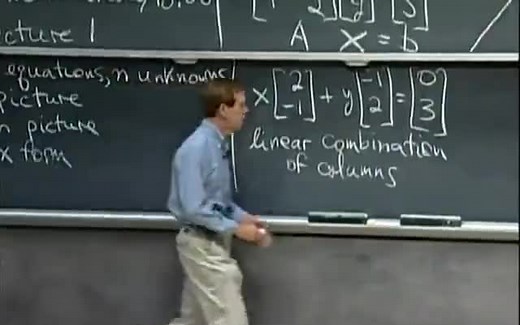 cture 1
A X = b
equations, n unknowns
picture
n picture
x form
x [2 -1] + y [-1 2] = [0 3]
linear combination
of columns